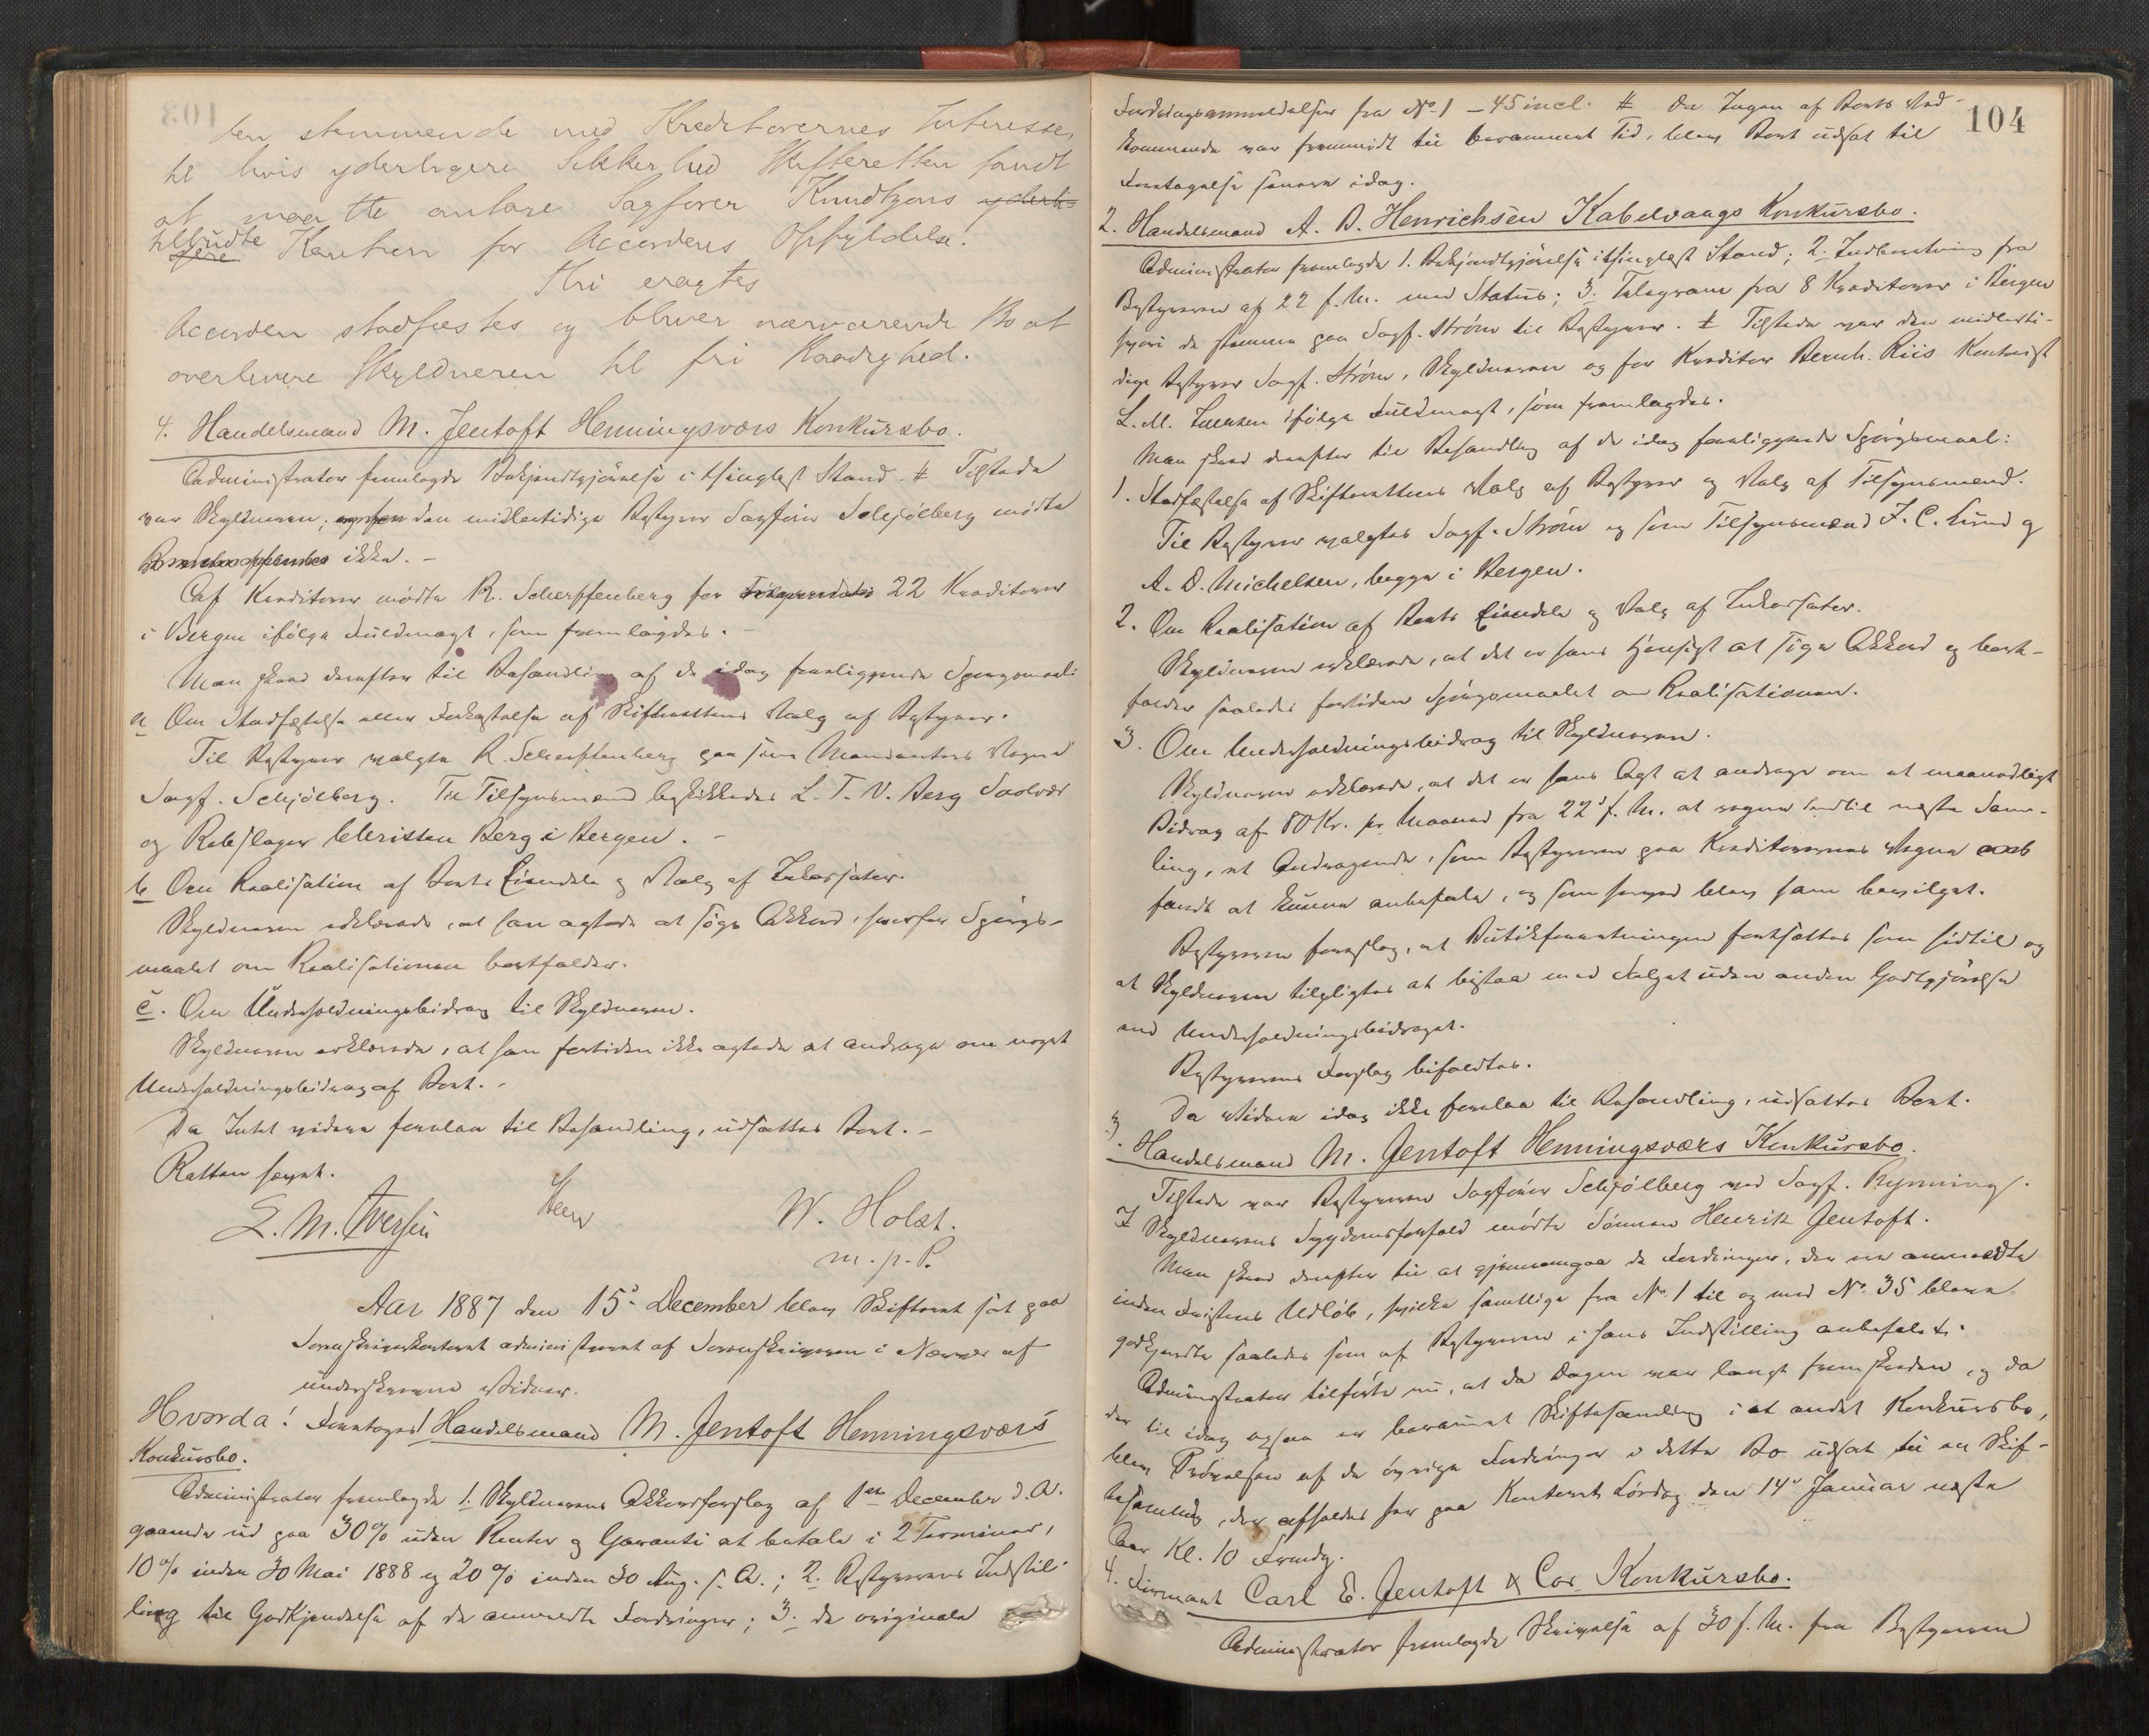 den stemmende med Kreditorernes Interesse,
til hvis yderligere Sikkerhed Skifteretten fandt
at maatte anføre Sagfører Knudtzons yderli-
tilbudte Kaution for Accordens Opfyldelse.
gere
Thi eragtes
Accorden stadfæstes og bliver nærværende Bo at
overlevere Skyldneren til fri Raadighed.
4. Handelsmand M. Jentoft Henningsværs Konkursbo.
Administrator fremlagde Bekjendtgjørelse i thinglæst Stand. # Tilstede
var Skyldneren; den midlertidige Bestyrer Sagfører Schjølberg mødte
ikke. –
Af Kreditorer mødte R. Scherffenberg for 22 Kreditorer
i Bergen ifølge Fuldmagt, som fremlagdes. –
Man skred derefter til Behandling af de idag foreliggende Spørgsmaal:
a Om Stadfæstelse eller Forkastelse af Skifterettens Valg af Bestyrer.
Til Bestyrer valgte R. Scherffenberg paa sine Mandanters Vegne
Sagf. Schjølberg. Til Tilsynsmænd beskikkedes L. T. V. Berg Svolvær
og Rebslager Christen Berg i Bergen. –
b Om Realisation af Boets Eiendele og Valg af Inkassator.
Skyldneren erklærede, at han agtede at søge Akkord, hvorfor Spørgs-
maalet om Realisationen bortfalder.
c. Om Underholdningsbidrag til Skyldneren.
Skyldneren erklærede, at han fortiden ikke agtede at andrage om noget
Underholdningsbidrag af Boet. –
Da Intet videre forelaa til Behandling, udsattes Boet. –
Retten hævet.
L. M. Iversen W. Holst.
m. p. P.
Aar 1887 den 15de December blev Skifteret sat paa
Sorenskriverkontoret administreret af Sorenskriveren i Nærvær af
underskrevne Vidner.
Hvorda! Foretoges 1 Handelsmand M. Jentoft Henningsværs
Konkursbo.
Administrator fremlagde 1. Skyldnerens Akkordforslag af 1ste December d. A.
gaaende ud paa 30% uden Renter og Garanti at betale i 2 Terminer,
10% inden 30 Mai 1888 og 20% inden 30 Aug. s. A.; 2. Bestyrerens Indstil-
ling til Godkjendelse af de anmeldte Fordringer; 3. de originale
104
Fordringsanmeldelser fra No 1 – 45 incl. # Da Ingen af Boets Ved-
kommende var fremmødt til berammet Tid, blev Boet udsat til
Foretagelse senere idag.
2. Handelsmand A. D. Henrichsen Kabelvaags Konkursbo.
Administrator fremlagde 1. Bekjendtgjørelse i thinglæst Stand; 2. Indberetning fra
Bestyreren af 22 f. M. med Status; 3. Telegram fra 8 Kreditorer i Bergen
hvori de stemme paa Sagf. Strøm til Bestyrer. # Tilstede var den midlerti-
dige Bestyrer Sagf. Strøm, Skyldneren og for Kreditor Bernh. Riis Kontorist
L. M. ifølge Fuldmagt, som fremlagdes.
Man skred derefter til Behandling af de idag foreliggende Spørgsmaal:
1. Stadfæstelse af Skifterettens Valg af Bestyrer og Valg af Tilsynsmænd.
Til Bestyrer valgtes Sagf. Strøm og som Tilsynsmænd J. C. Lund og
A. D. Michelsen, begge i Bergen.
2. Om Realisation af Boets Eiendele og Valg af Inkassator.
Skyldneren erklærede, at det er hans Hensigt at søge Akkord og bort-
falder saaledes fortiden Spørgsmaalet om Realisationen.
3. Om Underholdningsbidrag til Skyldneren.
Skyldneren erklærede, at det er hans Agt at andrage om et maanedligt
Bidrag af 80 Kr. pr Maaned fra 22de f. M. at regne indtil næste Sam-
ling, et Andragende, som Bestyreren paa Kreditorernes Vegne
fandt at kunne anbefale, og som herved blev ham bevilget.
Bestyreren foreslog, at Butikforretningen fortsættes som hidtil og
at Skyldneren tilpligtes at bistaa med Salget uden anden Godtgjørelse
end Underholdningsbidraget.
Bestyrerens Forslag bifaldtes.
Da Videre idag ikke forelaa til Behandling, udsattes Boet.
3. Handelsmand M. Jentoft Henningsværs Konkursbo.
Tilstede var Bestyreren Sagfører Schjølberg ved Sagf. Rynning.
I Skyldnerens Sygdomsforfald mødte Sønnen Henrik Jentoft.
Man skred derefter til at gjennemgaa de Fordringer, der ere anmeldte
inden Fristens Udløb, hvilke samtlige fra No. 1 til og med No. 35 bleve
godkjendte saaledes som af Bestyreren i hans Indstilling anbefalet.
Administrator tilførte nu, at da Dagen var langt fremskreden, og da
der til idag ogsaa er berammet Skiftesamling i et andet Konkursbo,
blev Prøvelsen af de øvrige Fordringer i dette Bo udsat til en Skif-
tesamling, der afholdes her paa Kontoret Lørdag den 14de Januar næste
Aar Kl. 10 Formdg.
4. Firmaet Carl E. Jentoft & Cos Konkursbo.
Administrator fremlagde Skrivelse af 30 f. M. fra Bestyreren